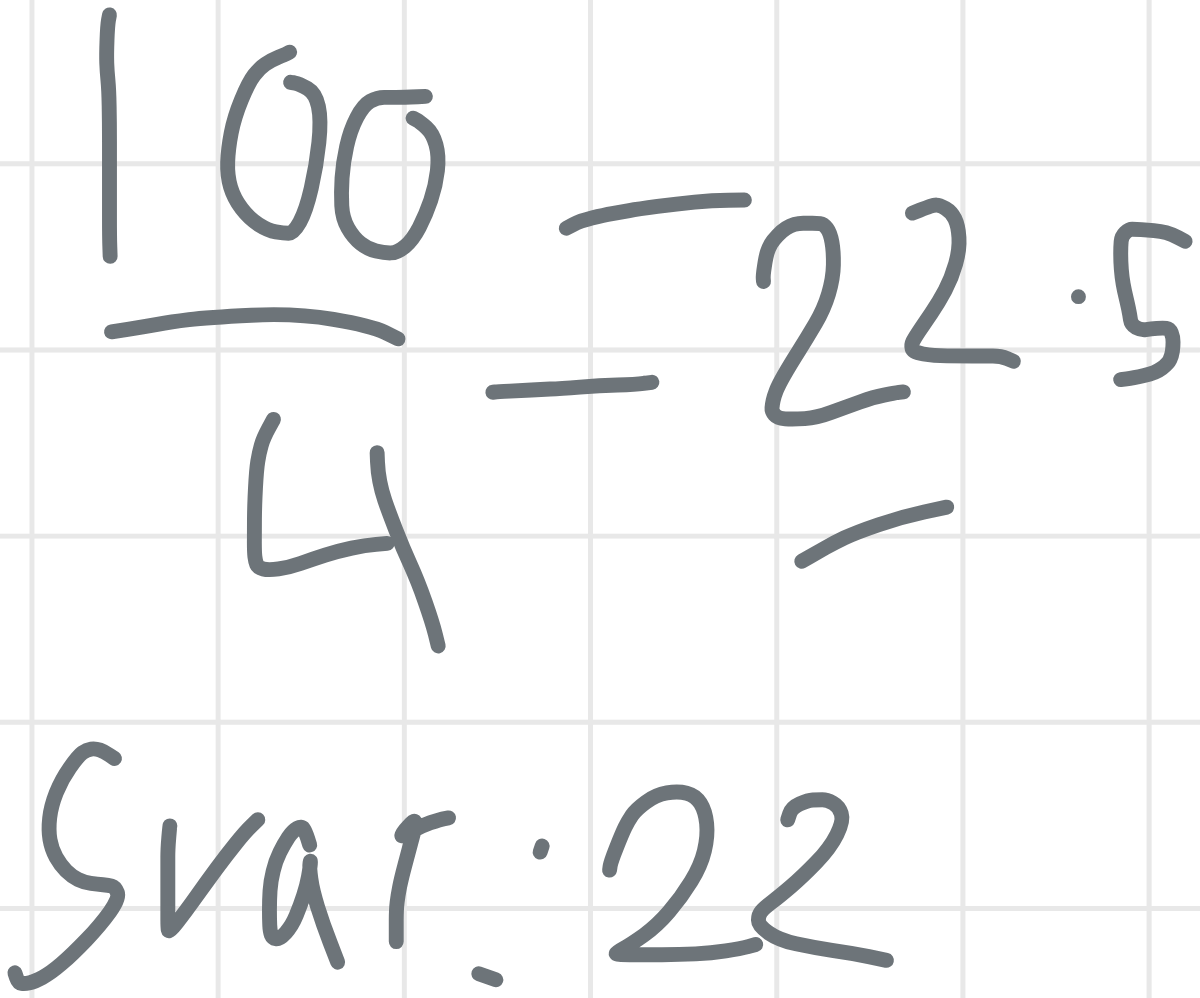 100/4 = 22.5
Svar: 22